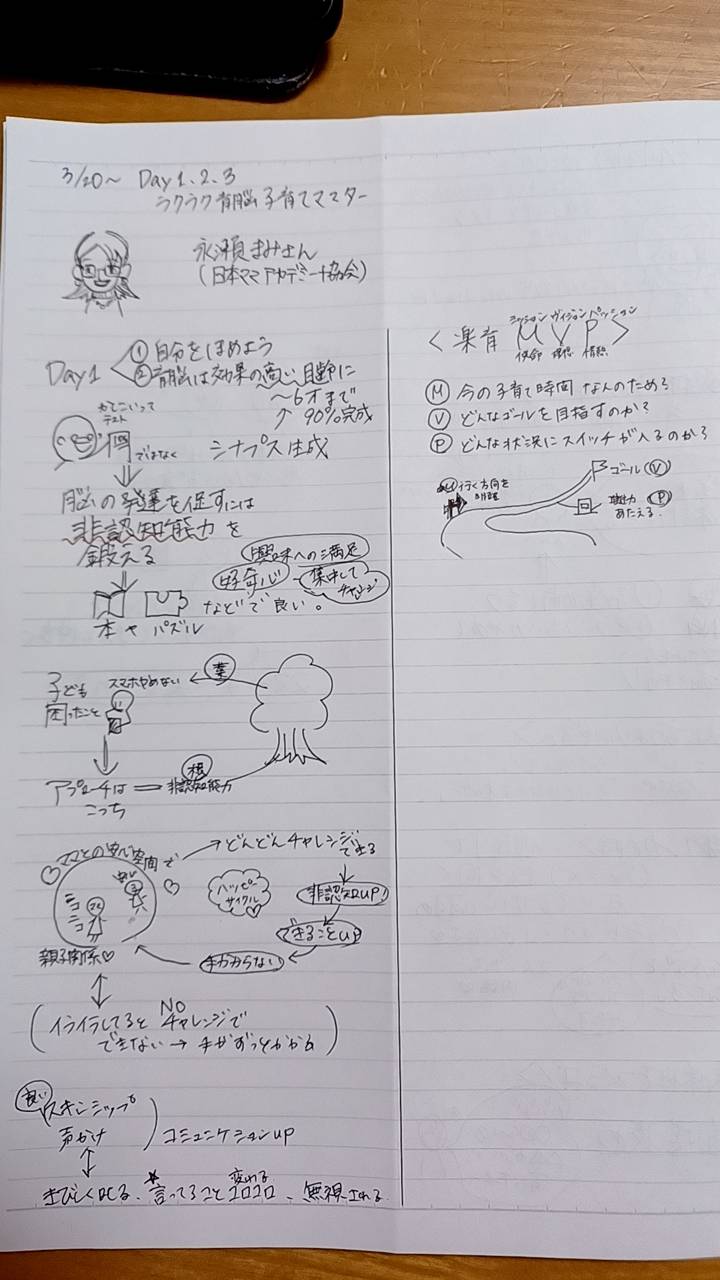 3/20〜 Day 1、2、3
ラクラク育脳子育てママスター
永瀬まみさん
(日本ママアカデミー協会)
Day1
① 自分をほめよう
② 育脳は効果の高い月齢に
〜6才まで
↑ 90%完成
かてこいって
テスト
ではなく
シナプス生成
脳の発達を促すには
非認知能力を
鍛える
興味への満足
好奇心 - 集中して
チャレンジ
本や パズル などで良い。
子ども
困ったこと
スマホやめない ← 葉
アプローチは
こっち
根
非認知能力
ママとの安心空間で
→ どんどんチャレンジ
できる
安心
子
ママ
ニコ
ニコ
ハッピー
サイクル♡
非認知UP!
できることUP
手がかからない
親子関係♡
(イライラしてると NO チャレンジで
できない → 手がずっとかかる)
良い
スキンシップ
声かけ
コミュニケーションup
きびしく叱る、言ってること 変わる コロコロ、無視される
ミッション ヴィジョン パッション
<楽育 M V P>
使命 理想 情熱
Ⓜ 今の子育て時間 なんのため?
Ⓥ どんなゴールを目指すのか?
Ⓟ どんな状況にスイッチが入るのか?
ゴール Ⓥ
行く方向を
Ⓟ
あたえる.